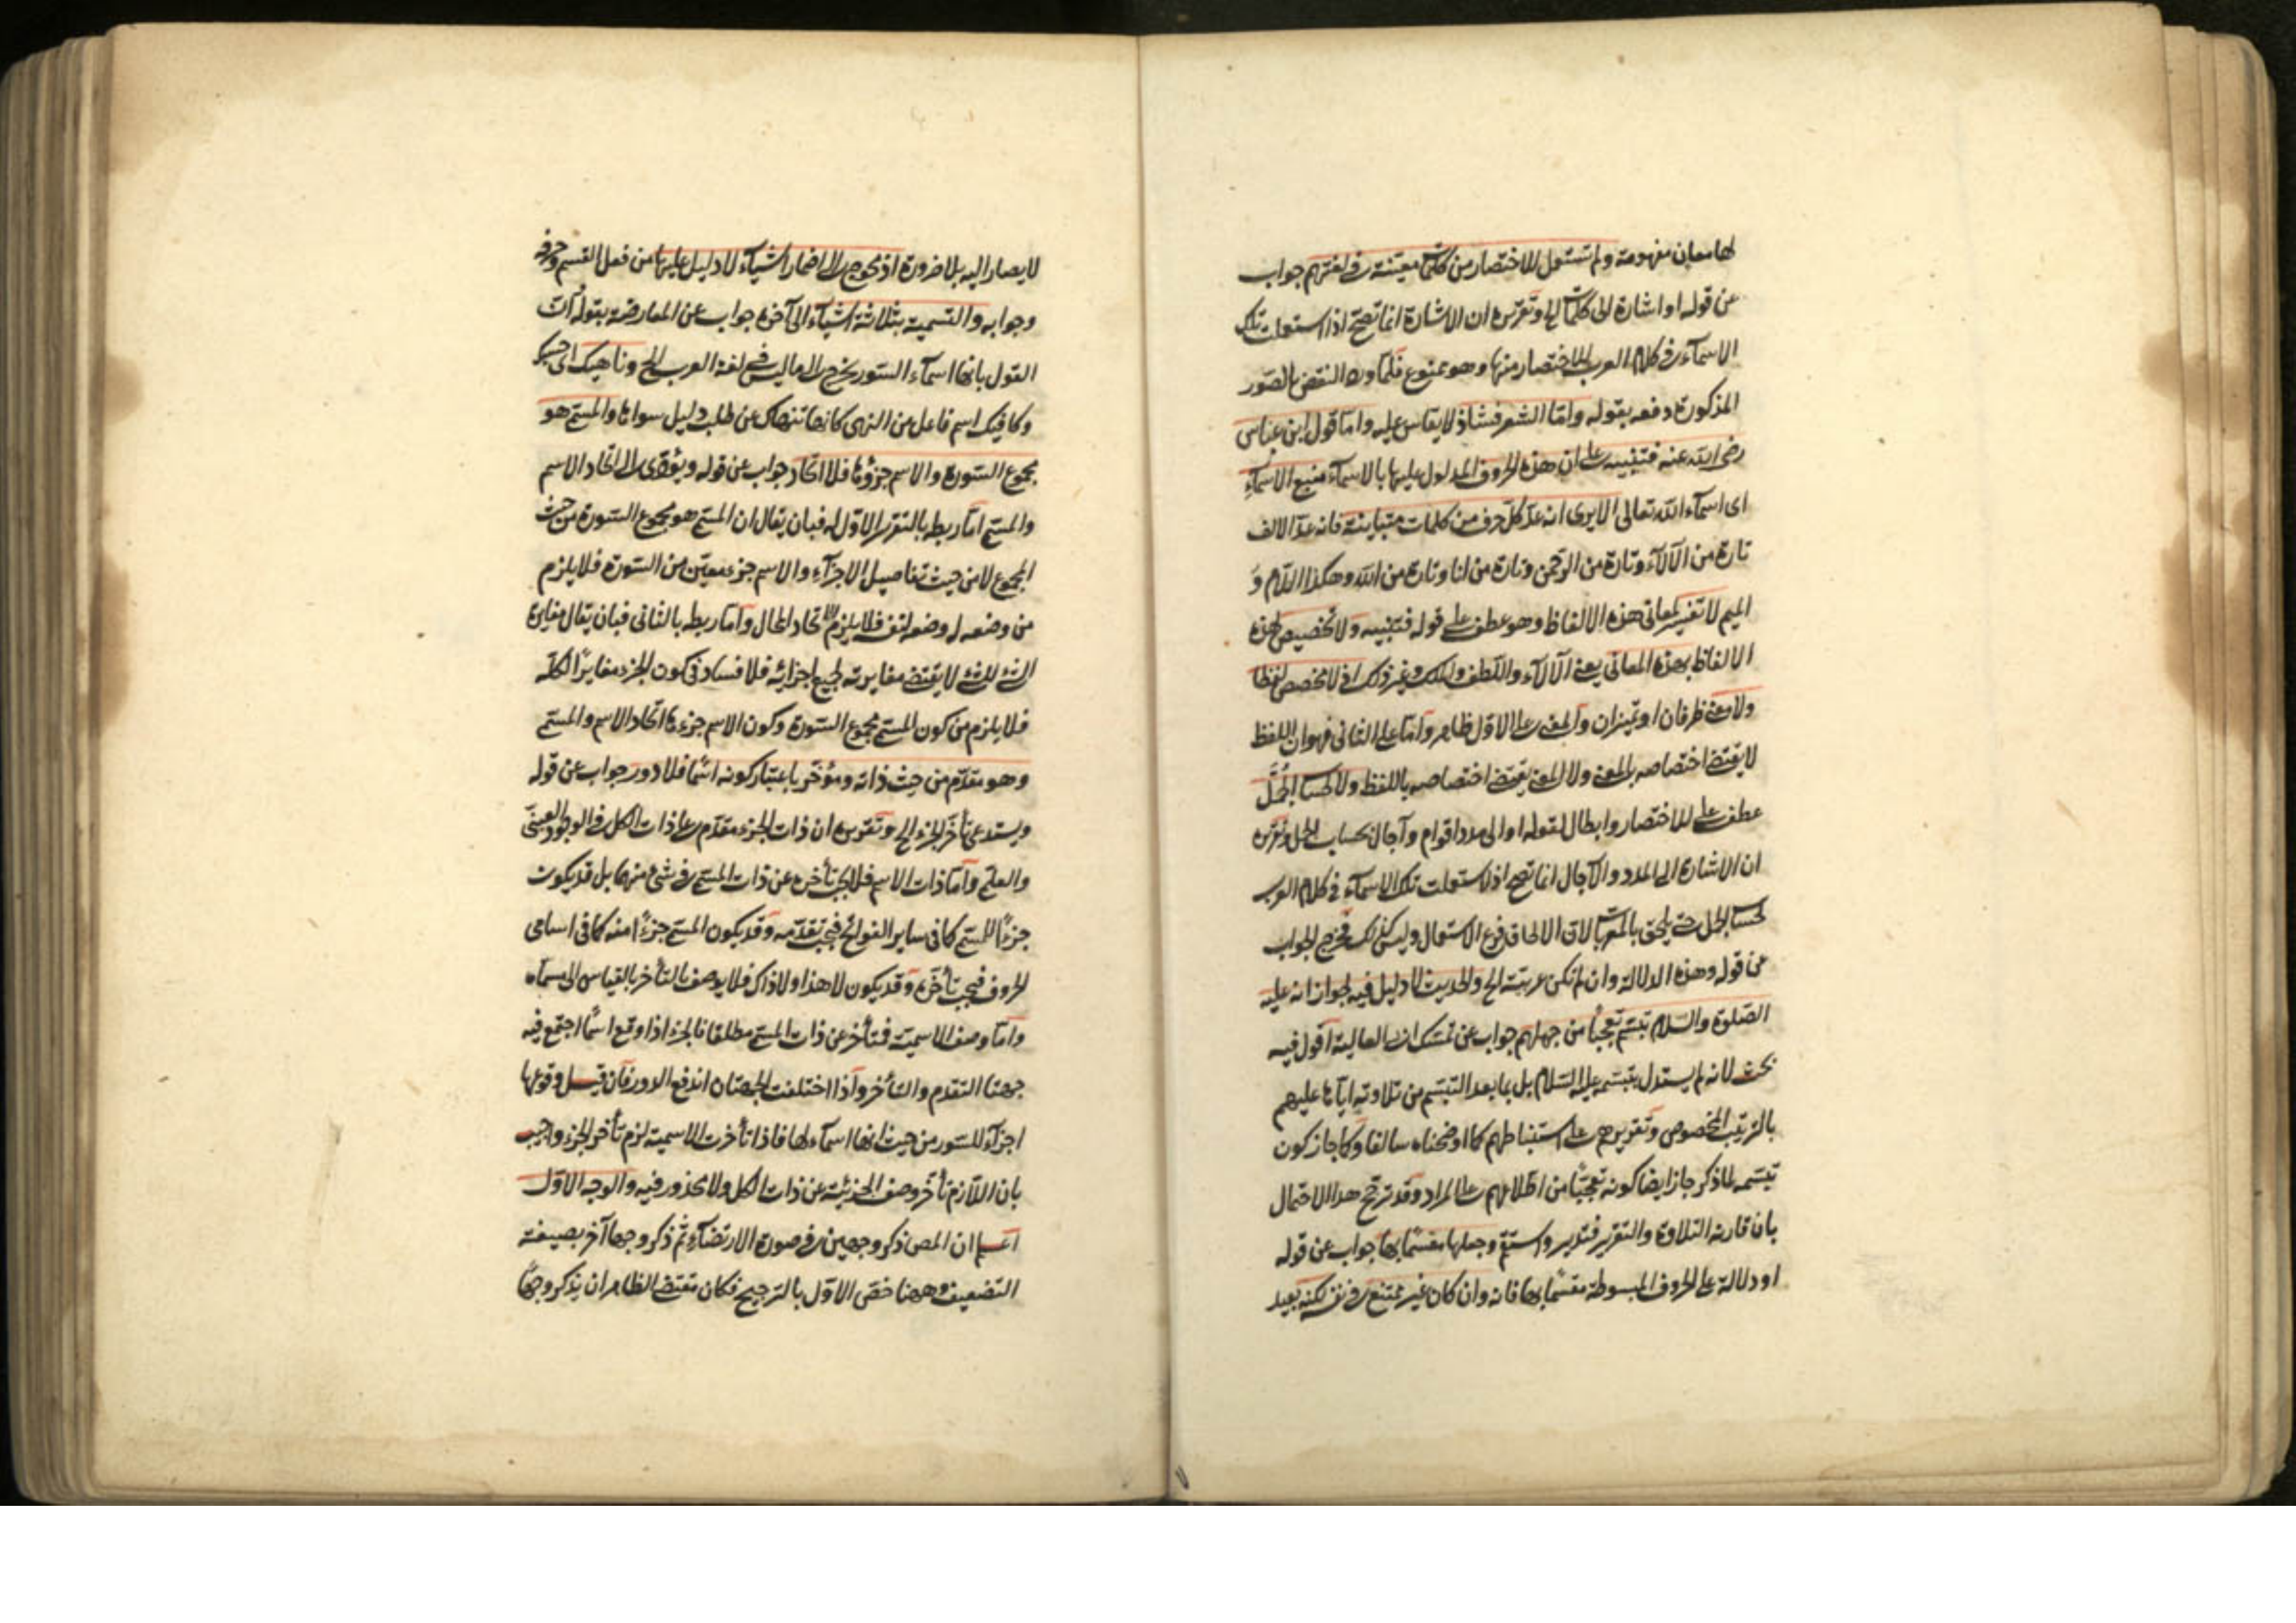 لها معان مفهومة ولم تستعمل للاختصار من كلمات معينة في لغتهم جواب
عن قوله او اشارة الى كلمات الخ وتقريره ان الاشارة انما تصح اذا استعملت تلك
الاسماء في كلام العرب للاختصار منها وهو ممنوع فلما ورد النقض بالصور
المذكورة دفعه بقوله واما الشعر فشاذ لا يقاس عليه واما قول ابن عباس
رضي الله عنه فتنبيه على ان هذه الحروف المدلول عليها بالاسماء منبع الاسماء
اى اسماء الله تعالى الا يرى انه عد كل حرف من كلمات متباينة فانه عد الالف
تارة من الآلاء وتارة من الرحمن وتارة من انا وتارة من الله وهكذا اللام و
الميم لا تفسير لمعانى هذه الالفاظ وهو عطف على قوله فتنبيه ولا تخصيص لهذه
الالفاظ بهذه المعانى يعنى الآلاء واللطف والملك وغير ذلك اذ لا مخصص لفظا
ولا معنى ظرفان او تميزان والمعنى على الاول ظاهر واما على الثانى فهو ان اللفظ
لا يقتضى اختصاصه بالمعنى ولا المعنى يقتضى اختصاصه باللفظ ولا لحساب الجمل
عطف على للاختصار وابطال لقوله او الى مدد اقوام وآجال بحساب الجمل وتقريره
ان الاشارة الى المدد والآجال انما تصح اذا استعملت تلك الاسماء في كلام العرب
لحساب الجمل حتى يلحق بالمعربات لان الالحاق فرع الاستعمال وليس كذلك فخرج الجواب
عن قوله وهذه الدلالة وان لم تكن عربية الخ والحديث لا دليل فيه لجواز انه عليه
الصلوة والسلام تبسم تعجبا من جهلهم جواب عن تمسك ابى العالية اقول فيه
بحث لانه لم يستدل بتبسمه عليه السلام بل بما بعد التبسم من تلاوته اياها عليهم
بالترتيب المخصوص وتقريرهم على استنباطهم كما اوضحناه سالفا وكما جاز كون
تبسمه لما ذكر جاز ايضا كونه تعجبا من اطلاعهم على المراد وقد ترجح هذا الاحتمال
بان قارنه التلاوة والتقرير فتدبر واستقم وجعلها مقسما بها جواب عن قوله
او دلالة على الحروف المبسوطة مقسما بها فانه وان كان غير ممتنع في نفسه لكنه بعيد
لا يصار اليه بلا ضرورة اذ يحوج الى اضمار اشياء لا دليل عليها من فعل القسم وحرفه
وجوابه والتسمية بثلاثة اشياء الى آخره جواب عن المعارضة بقوله ان
القول بانها اسماء السور يخرج الى ما ليس في لغة العرب الخ وناهيك اى حسبك
وكافيك اسم فاعل من النهى كانها تنهاك عن طلب دليل سواها والمسمى هو
مجموع السورة والاسم جزؤها فلا اتحاد جواب عن قوله ويؤدى الى اتحاد الاسم
والمسمى اما ربطه بالتقرير الاول له فبان يقال ان المسمى هو مجموع السورة من حيث
المجموع لا من حيث تفاصيل الاجزاء والاسم جزء معين من السورة فلا يلزم
من وضعه له وضعه لنفسه فلا يلزم الاتحاد المحال واما ربطه بالثانى فبان يقال مغايرة
الشئ للشئ لا يقتضى مغايرته لجميع اجزائه فلا فساد في كون الجزء مغايرا لكله
فلا يلزم من كون المسمى مجموع السورة وكون الاسم جزءها اتحاد الاسم والمسمى
وهو مقدم من حيث ذاته ومؤخر باعتبار كونه اسما فلا دور جواب عن قوله
ويستدعى تأخر الجزء الخ وتقريره ان ذات الجزء مقدم على ذات الكل في الوجود العينى
والعلمى واما ذات الاسم فلا يجب تأخره عن ذات المسمى في شئ منهما بل قد يكون
جزءا للمسمى كما في ساير الفواتح فيجب تقدمه وقد يكون المسمى جزءا منه كما في اسامى
الحروف فيجب تأخره وقد يكون لا هذا ولا ذاك فلا يوصف بالتأخر بالقياس الى مسماه
واما وصف الاسمية فمتأخر عن ذات المسمى مطلقا فالجزء اذا وقع اسما اجتمع فيه
جهتا التقدم والتأخر واذا اختلفت الجهتان اندفع الدور فان قيل وقوعها
اجزاء للسور من حيث انها اسماء لها فاذا تأخرت الاسمية لزم تأخر الجزء واجيب
بان اللازم تأخر وصف الجزئية عن ذات الكل ولا محذور فيه والوجه الاول
اعلم ان المص ذكر وجهين في صورة الارتضاء ثم ذكر وجها آخر بصيغة
التضعيف وههنا خص الاول بالترجيح فكان مقتضى الظاهر ان يذكر وجها